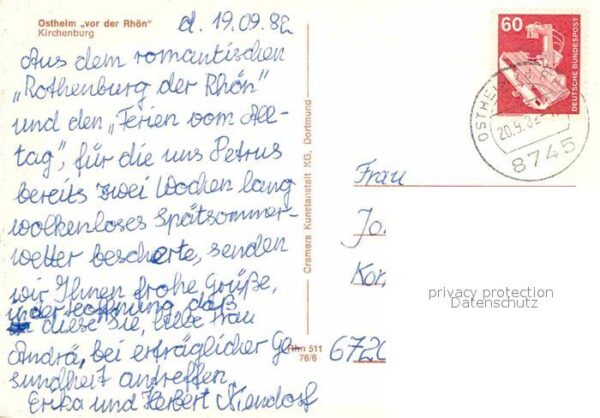 Ostheim „vor der Rhön“
Kirchenburg
d. 19.09.82
Aus dem romantischen
„Rothenburg der Rhön“
und den „Ferien vom All-
tag“, für die uns Petrus
bereits zwei Wochen lang
wolkenloses Spätsommer-
wetter bescherte, senden
wir Ihnen frohe Grüße,
in der Hoffnung, daß
diese Sie, liebe Frau
Andrä, bei erträglicher Ge-
sundheit antreffen.
Erika und Herbert Niendorf
Cramers Kunstanstalt KG, Dortmund
Rhn 511
76/6
60
DEUTSCHE BUNDESPOST
20.9.82
8745
Frau
Jo
Kon
672
privacy protection
Datenschutz